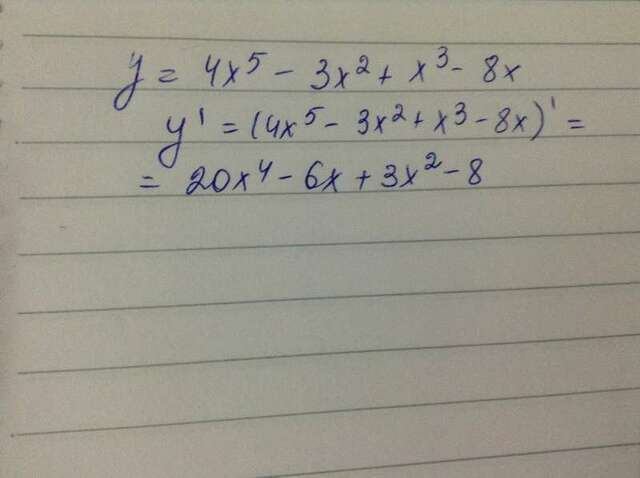 y = 4x⁵ - 3x² + x³ - 8x
y' = (4x⁵ - 3x² + x³ - 8x)' =
= 20x⁴ - 6x + 3x² - 8